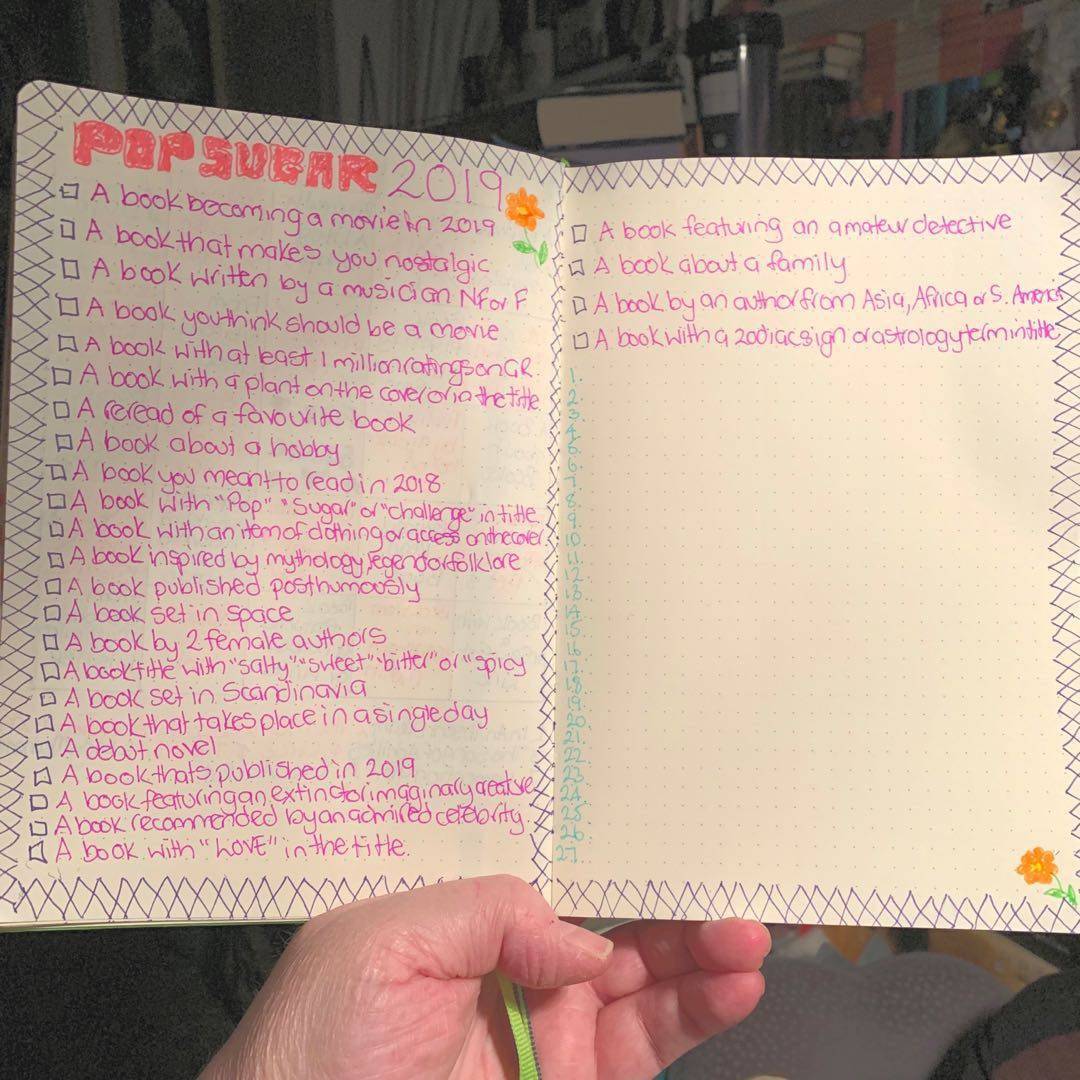 POPSUGAR 2019
A book becoming a movie in 2019
A book that makes you nostalgic
A book written by a musician NF or F
A book you think should be a movie
A book with at least 1 million ratings on GR.
A book with a plant on the cover or in the title
A reread of a favourite book
A book about a hobby
A book you meant to read in 2018
A book with "Pop" "Sugar" or "challenge" in title
A book with an item of clothing or access on the cover
A book inspired by mythology, legend or folklore
A book published posthumously
A book set in space
A book by 2 female authors
A book title with "salty" "sweet" "bitter" or "spicy
A book set in Scandinavia
A book that takes place in a single day
A debut novel
A book thats published in 2019
A book featuring an extinct or imaginary creature
A book recommended by an admired celebrity.
A book with "LOVE" in the title.
A book featuring an amateur detective
A book about a family
A book by an author from Asia, Africa or S. America
A book with a zodiac sign or astrology term in title
1.
2.
3.
4.
5.
6.
7.
8.
9.
10.
11.
12.
13.
14.
15.
16.
17.
18.
19.
20.
21.
22.
23.
24.
25.
26.
27